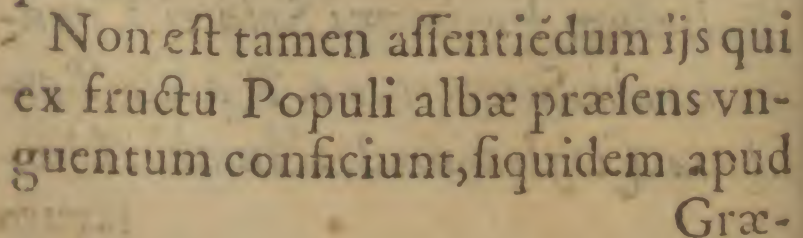 Non eſt tamen aſſentiédum ijs qui
ex fructu Populi albæ præſens vn-
guentum conficiunt, ſiquidem apud
Græ-